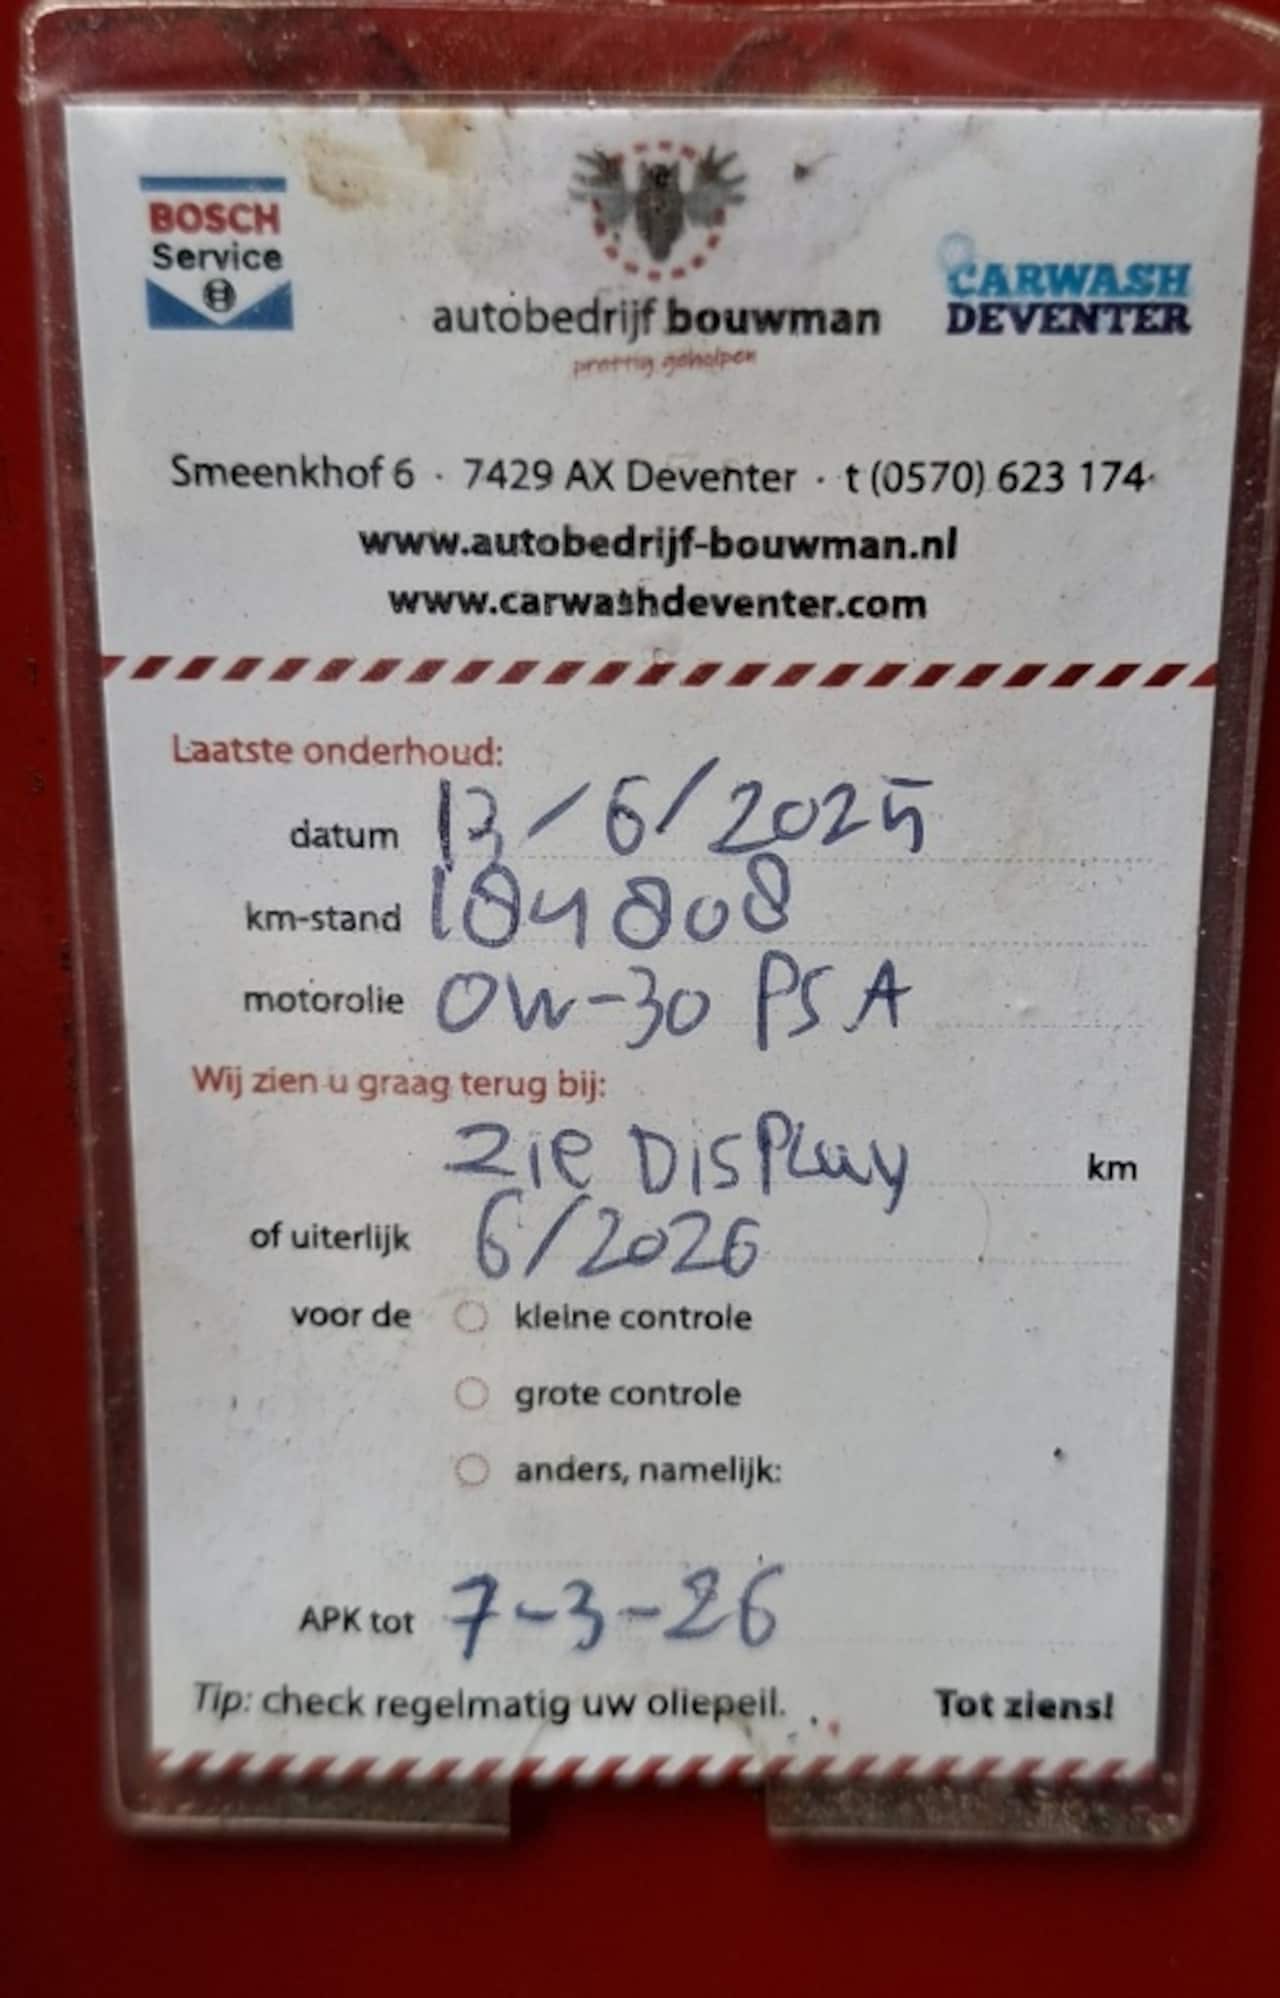 BOSCH
Service
autobedrijf bouwman
prettig geholpen
CARWASH
DEVENTER
Smeenkhof 6 · 7429 AX Deventer · t (0570) 623 174
www.autobedrijf-bouwman.nl
www.carwashdeventer.com
Laatste onderhoud:
datum 13/6/2025
km-stand 184808
motorolie 0W-30 PSA
Wij zien u graag terug bij:
Zie DisPlay km
of uiterlijk 6/2026
voor de kleine controle
grote controle
anders, namelijk:
APK tot 7-3-26
Tip: check regelmatig uw oliepeil. Tot ziens!